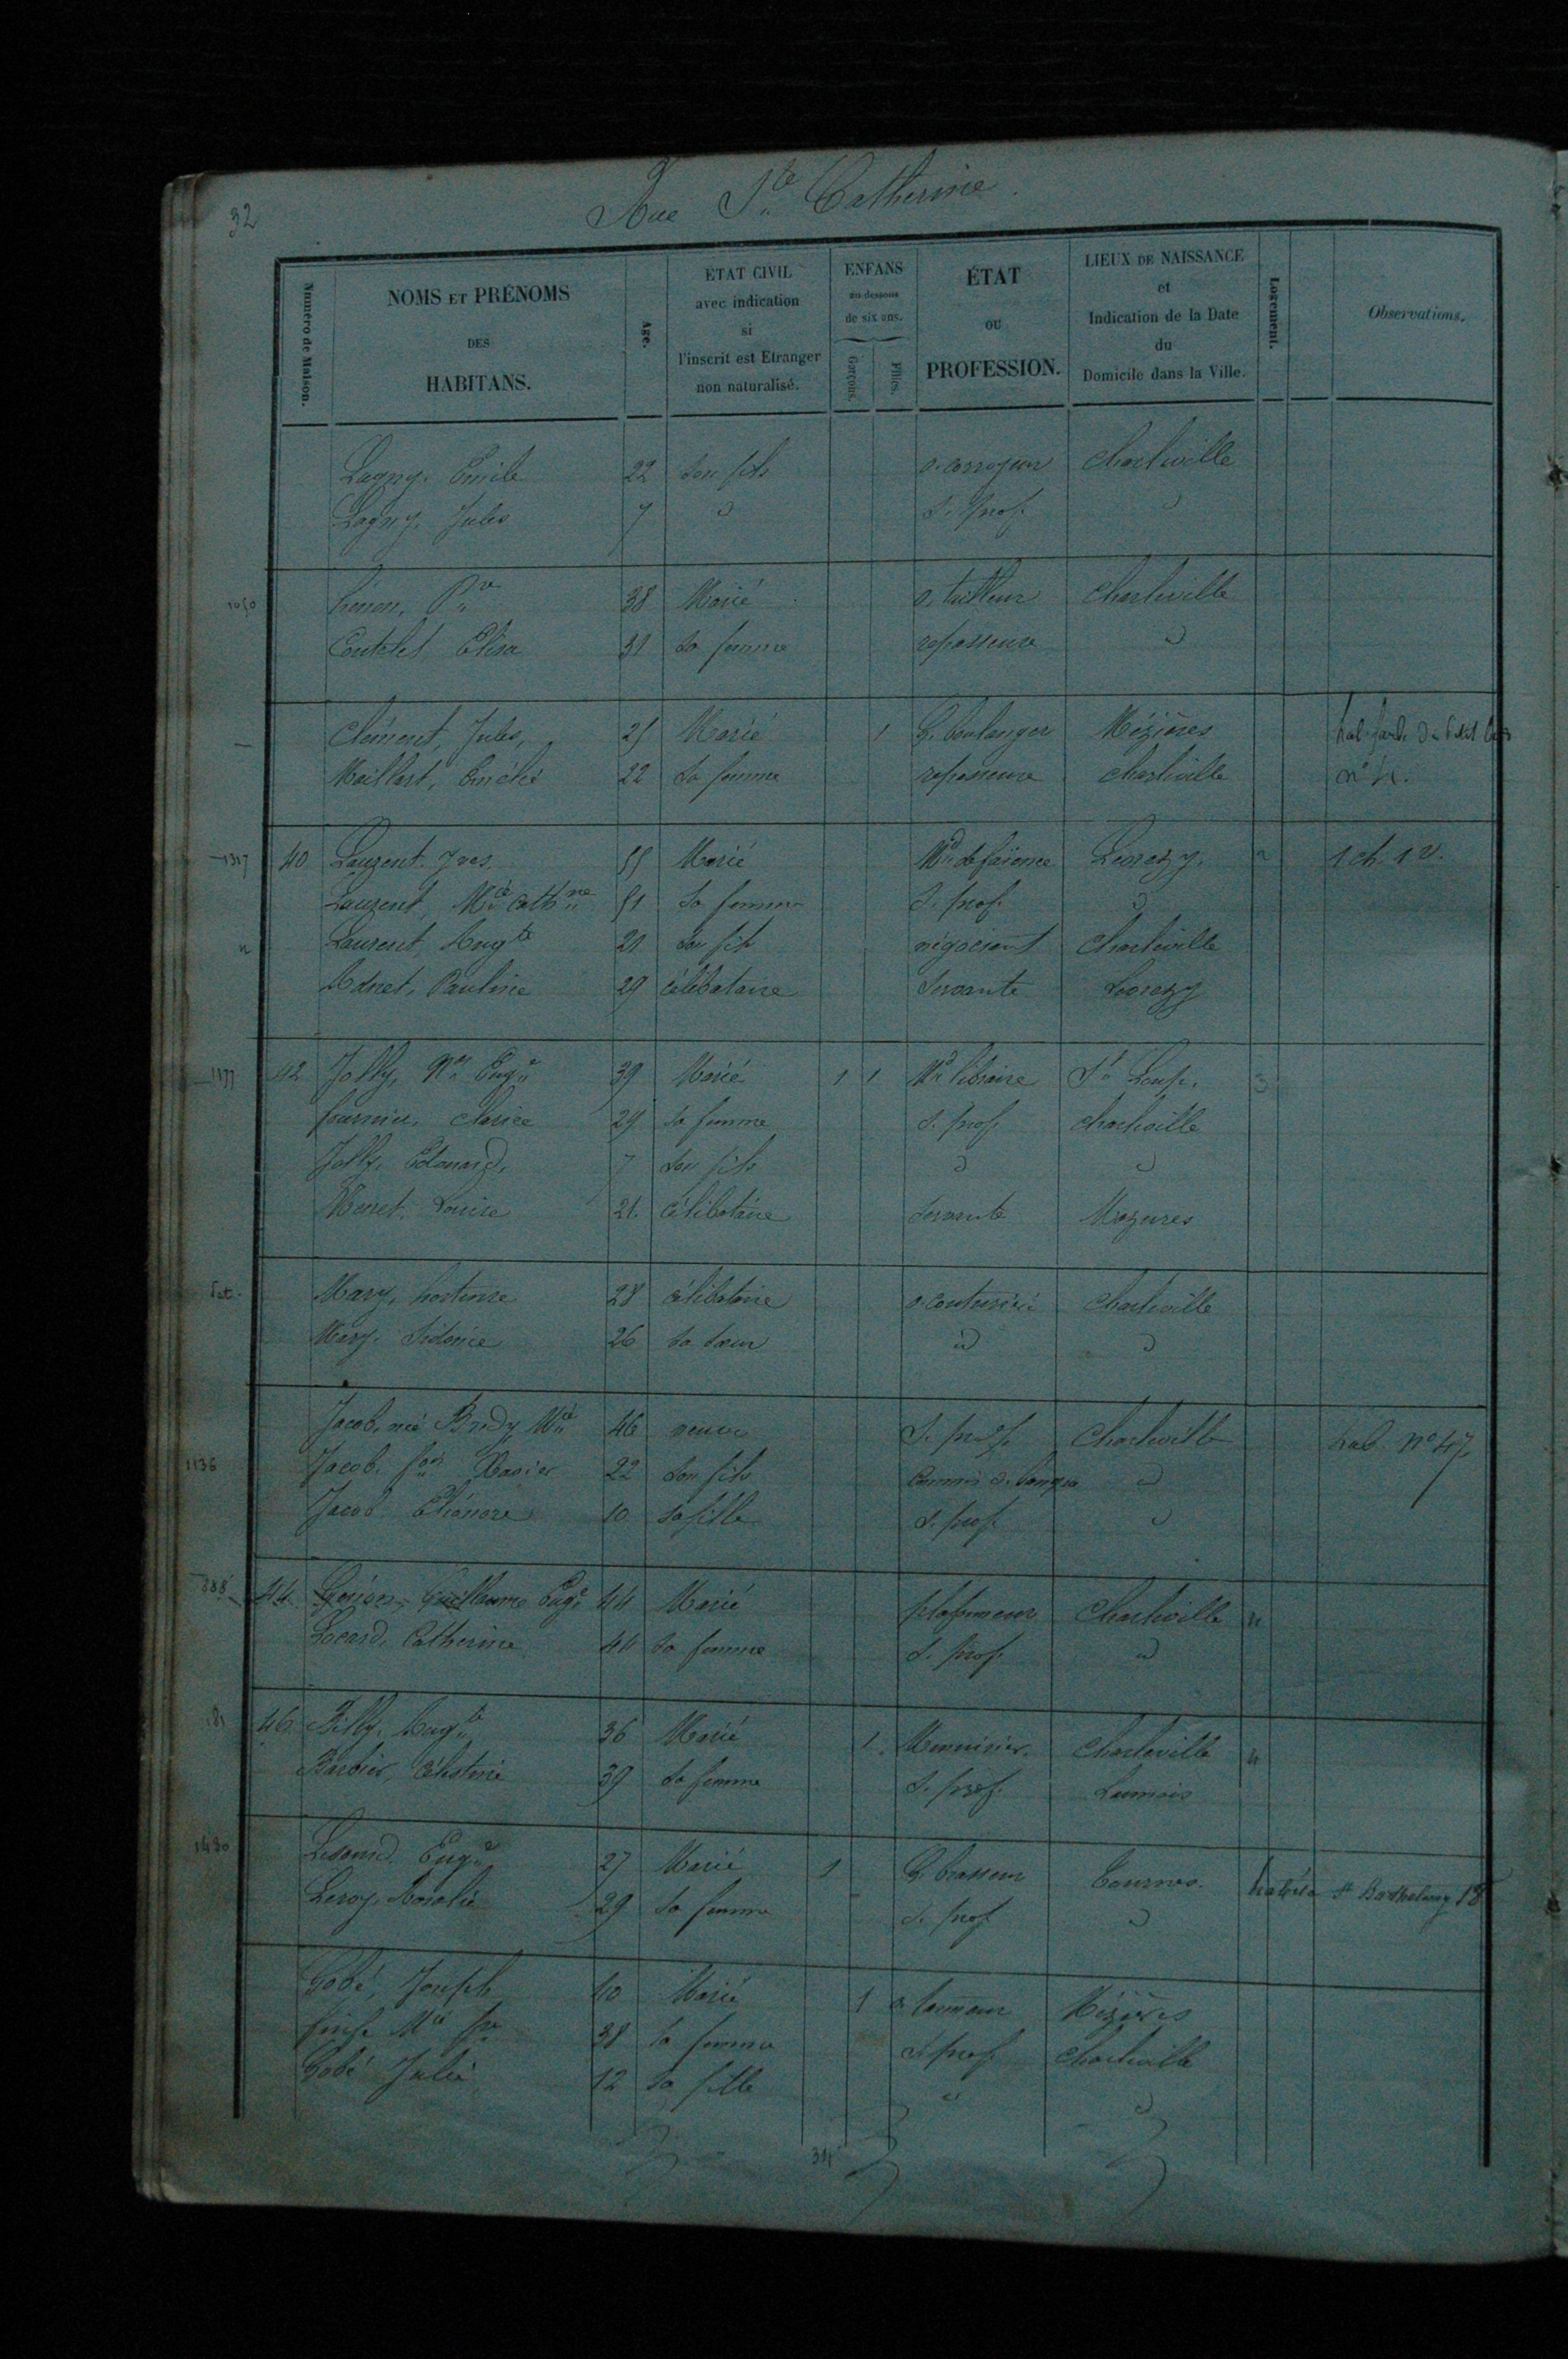 32
Rue Ste Catherine.
Numéro de Maison. NOMS ET PRÉNOMS DES HABITANS. Age. ÉTAT CIVIL avec indication si l'inscrit est Etranger non naturalisé. ENFANS au-dessous de six ans. Garçons. Filles. ÉTAT OU PROFESSION. LIEUX DE NAISSANCE et Indication de la Date du Domicile dans la Ville. Logement. Observations.
Lagny. Emile 22 son fils o. corroyeur Charleville
Lagny. Jules 7 d S. prof. d
1050 38 Marié o. tailleur Charleville
Elisa 31 sa femme repasseuse d
Clément, Jules, 25 Marié 1 G. boulanger Mézières
Maillart, 22 sa femme repasseuse Charleville
1317 40 Laurent. Yves. 55 Marié Md de faïence 2 1 ch. 1 v.
Laurent, Mie Cathne 51 sa femme S. prof. d
Laurent, Augte 21 son fils négociant Charleville
Adnet, Pauline 29 célibataire servante
1177 42 Jolly, Nas Euge 39 Marié 1 1 Md libraire St Loup.
29 sa femme S. prof. Charleville
Jolly, Edouard, 7 son fils d d
Louise 21. célibataire servante Mazures
Mary, hortense 28 célibataire o. couturière Charleville
Mary. Sidonie 26 sa sœur d d
Jacob, née Bredy Mie 46 veuve S. prof. Charleville hab. no 47
1136 Jacob, Xavier 22 son fils commis d. d
Jacob Eléonore 10 sa fille S. prof. d
44 Guillaume Euge 44 Marié plafonneur Charleville
Locard, Catherine 44 sa femme S. prof. d
46 Billy. Augte 36 Marié 1. Menuisier. Charleville
Barbier, Célestine 39 sa femme S. prof. Lumois
1430 Euge 27 Marié 1 G. brasseur Tournes. St Barthelemy 18
Leroy, Rosalie 29 sa femme S. prof. d
Gobé, Joseph 40 Marié 1 o. tanneur Mézières
Mie 38 sa femme S. prof. Charleville
Gobé Julie 12 sa fille d d